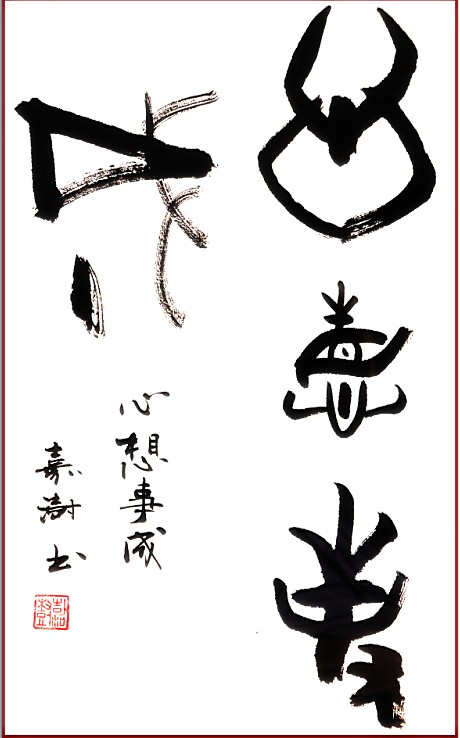 心想事
成
心想事成
嘉澍书